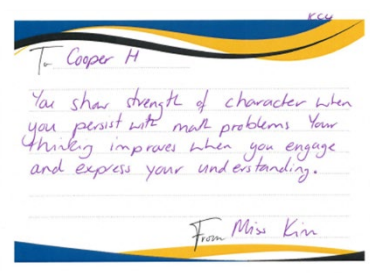 To Cooper H
You show strength of character when
you persist with math problems Your
thinking improves when you engage
and express your understanding.
From Miss Kim